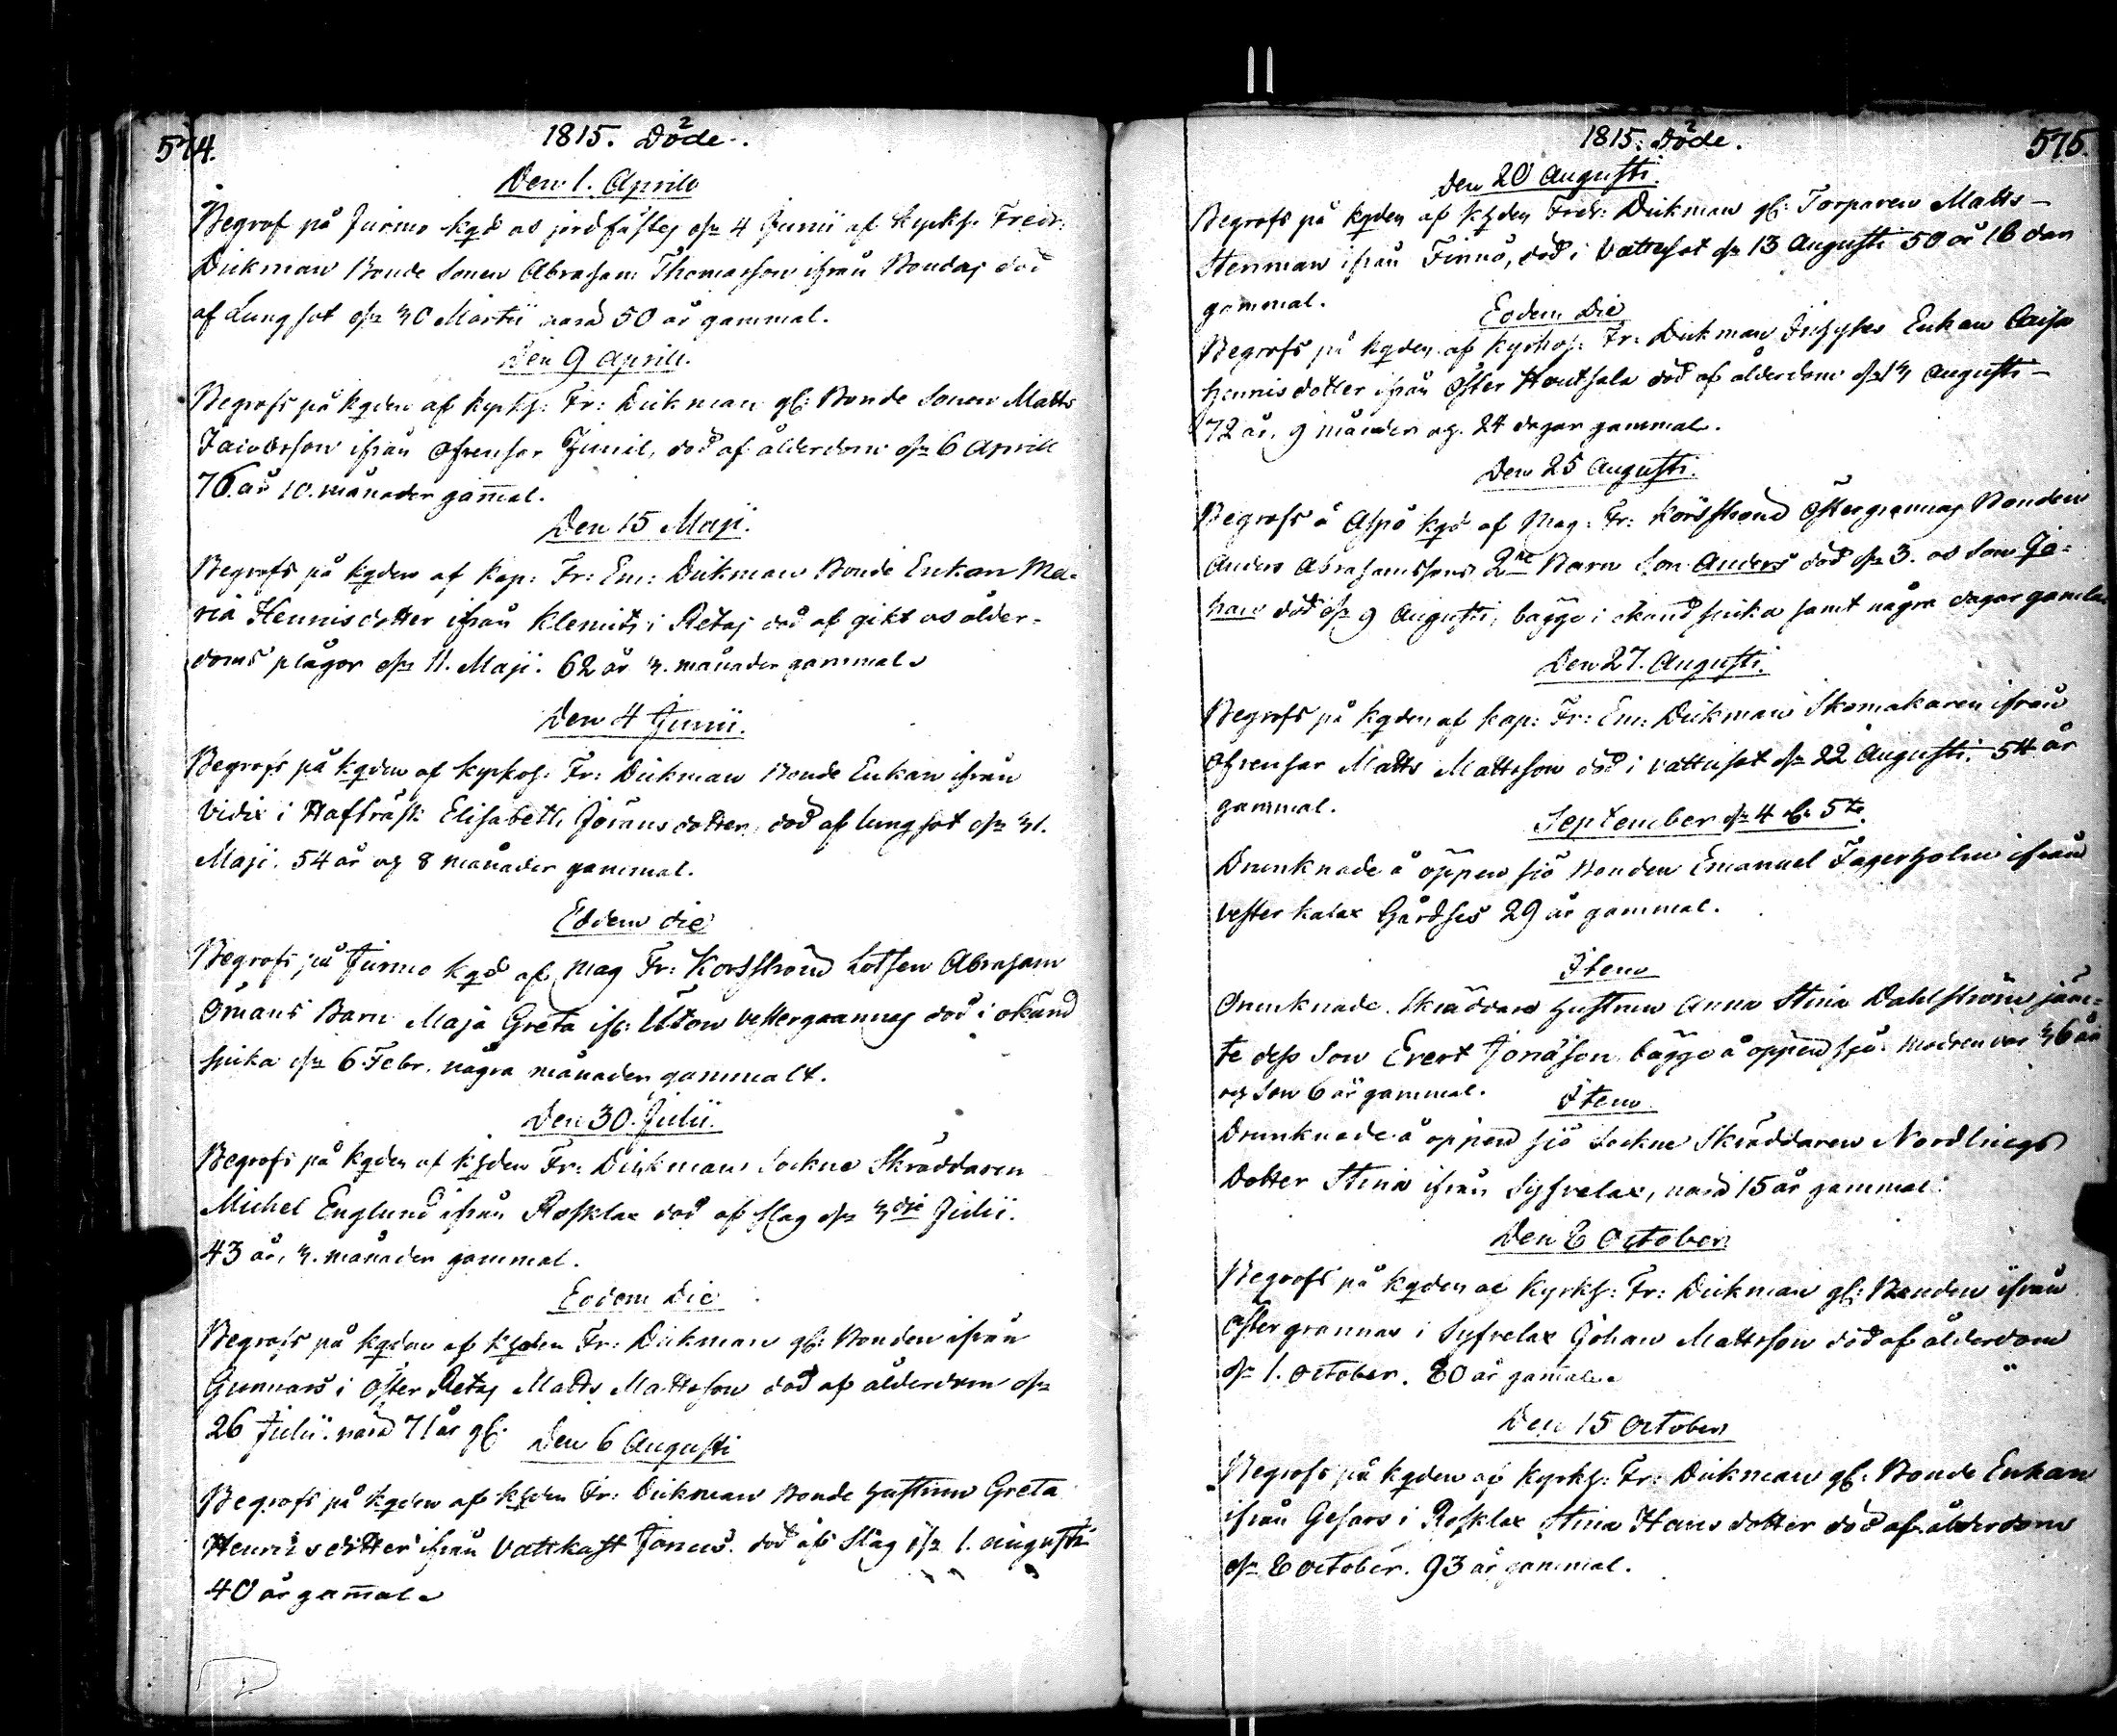 574.
1815. Döde.
Den 1. Aprill
Begrof på Jurmo kgd os jordfästes d. 4 Junii af Kyrkh. Fredr:
Dickman Bonde Sonen Abraham Thomasson ifrån Bondas död
af Lungsot d. 30 Martii 50 år gammal.
Den 9 Aprill.
Begrofs på kgden af Kyrkh: Fr: Dickman gl: Bonde Sonen Matts
Jacobsson ifrån död af ålderdom d. 6 Aprill
76. år 10. månader gam̄al.
Den 15 Maji.
Begrofs på kgden af Kap: Fr: Em: Dickman Bonde Enkan Ma-
ria Hennisdotter ifrån Klemits i Retais död af gikt os ålder-
doms plågor d. 11. Maji. 62 år 3. månader gammal
Den 4 Junii.
Begrofs på kgden af Kyrkoh: Fr: Dickman Bonde Enkan ifrån
Vidix i Hafträsk Elisabeth Jöransdotter, död af lungsot d. 31.
Maji. 54 år og 8 månader gammal.
Eodem die
Begrofs på Jurmo kgd af Mag Fr: Korsström Lotsen Abraham
Ömans Barn Maja Greta if: Utön Vestergrannas död i okänd
sjuka d. 6 Febr. några månader gammalt.
Den 30. Julii.
Begrofs på kgden af Khden Fr: Dickman Sockne Skräddaren
Michel Englund ifrån Rofsklax död af slag d. 3die Julii.
43 år, 3. månader gammal.
Eodem Die
Begrofs på kgden af Khden Fr: Dickman gl: Bonden ifrån
Gunnars i Öster Retais Matts Mattsson död af ålderdom d.
26 Julii. 71 år gl.
Den 6 Augusti
Begrofs på kgden af Khden Fr: Dickman Bonde Hustrun Greta
Henriksdotter ifrån Vattkast Jonus. död af Slag d. 1. Augusti
40 år gam̄al
1815. Döde.
575.
Den 20 Augusti.
Begrofs på kgden af Khden Fredr: Dickman gl: Torparen Matts
Stenman ifrån Finnö, död i Vattusot d. 13 Augusti 50 år 16 dar
gammal.
Eodem Die
Begrofs på kgden af Kyrkoh: Fr: Dickman Enkan Caisa
Hennisdotter ifrån Öster Houtsala död af ålderdom d. 13 Augusti
72 år, 9 månader og. 24 dagar gammal.
Den 25 Augusti.
Begrofs å Aspö kgd af Mag: Fr: Korsström Östergrannas Bonden
Anders Abrahamssons 2ne Barn Son Anders död d. 3. os Son Jo-
han död d. 9 Augusti, bägge i okänd sjuka samt några dagar gamla
Den 27. Augusti.
Begrofs på kgden af Kap: Fr: Em: Dickman Skomakaren ifrån
Matts Mattsson död i vattusot d. 22 Augusti. 54 år
gammal.
September d. 4 l. 5te.
Drunknade å öppen sjö Bonden Emanuel Fagerholm ifrån
Vesterkalax Gårdses 29 år gammal.
Item
Drunknade Skräddare Hustrun Anna Stina Dahlström jäm-
te dess Son Evert Jonasson bägge å öppen sjö. Modren var 36 år
og Son 6 år gammal.
Item
Drunknade å öppen sjö Sockne Skräddaren Nordlings
Dotter Stina ifrån Syfvelax, 15 år gammal.
Den 8 October
Begrofs på kgden af Kyrkh: Fr: Dickman gl: Bonden ifrån
Östergrannas i Syfvelax Johan Mattsson död af ålderdom
d. 1. October. 80 år gam̄al.
Den 15 October
Begrofs på kgden af Kyrkh: Fr: Dickman gl: Bonde Enkan
ifrån Gesars i Rofsklax Stina Hansdotter död af ålderdom
d. 8 October. 93 år gammal.